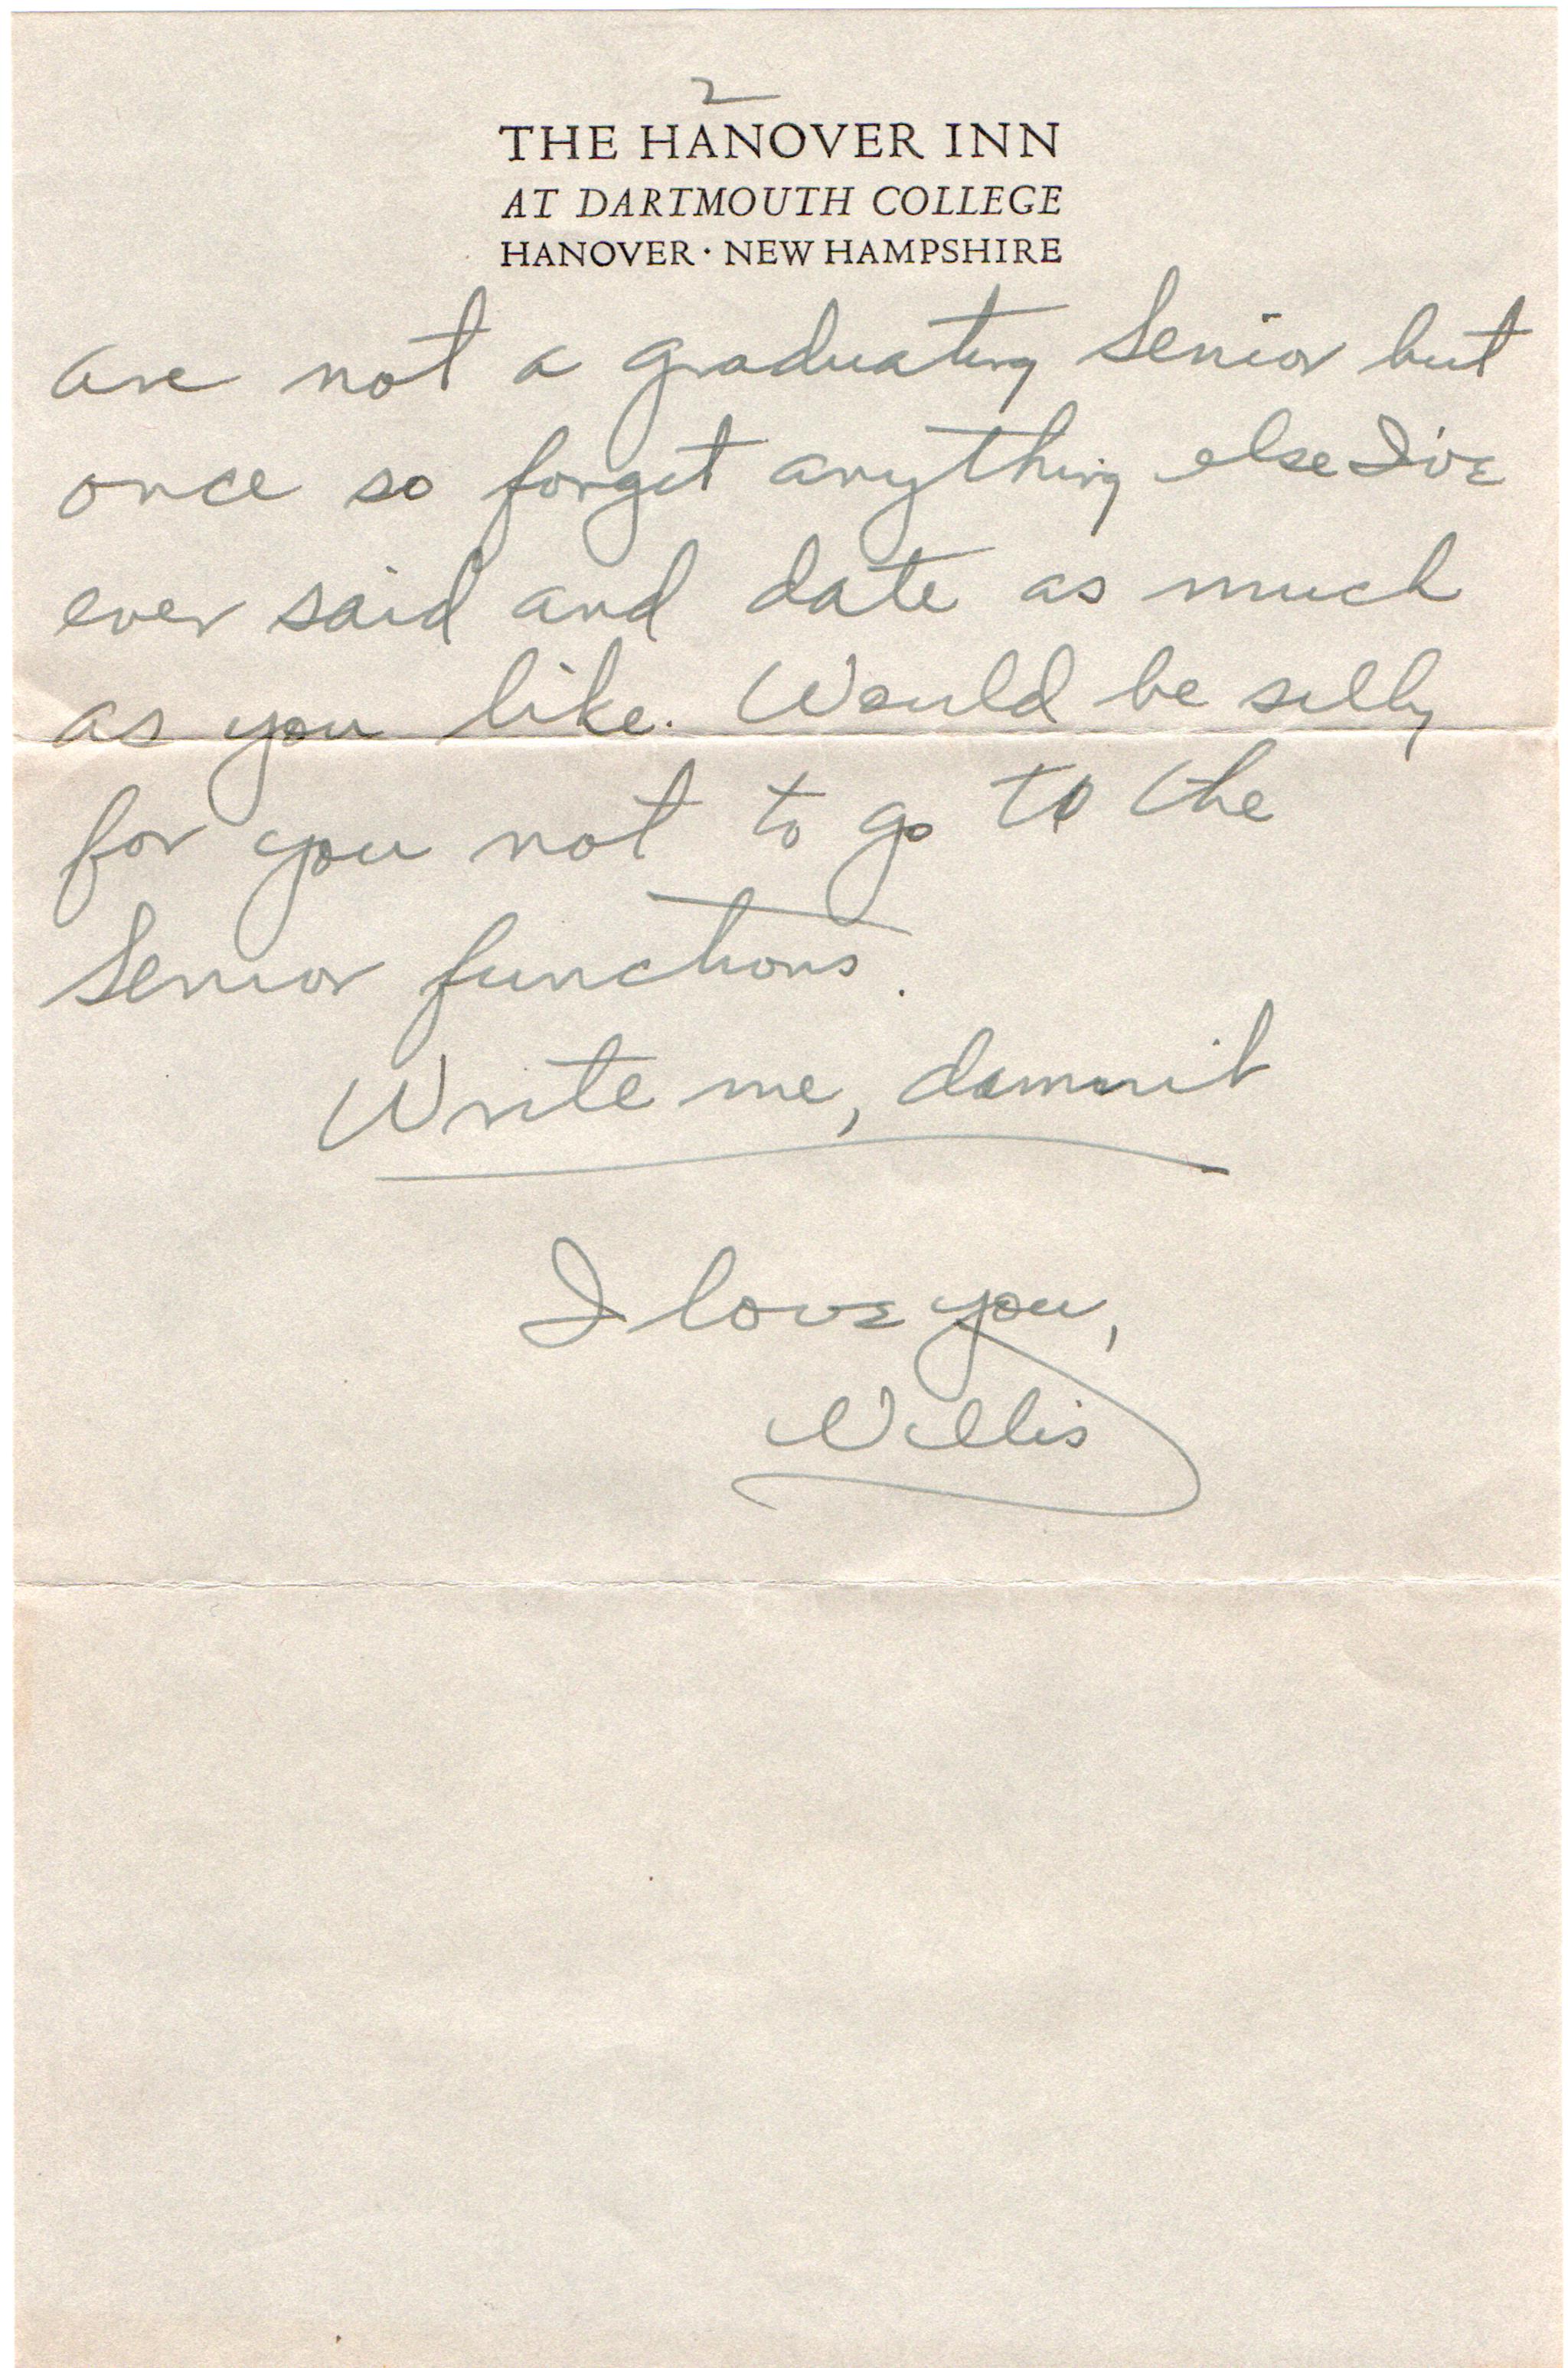 2
THE HANOVER INN
AT DARTMOUTH COLLEGE
HANOVER · NEW HAMPSHIRE
are not a graduating Senior but
once so forget anything else I've
ever said and date as much
as you like. Would be silly
for you not to go to the
Senior functions.
Write me, damnit
I love you,
Willis